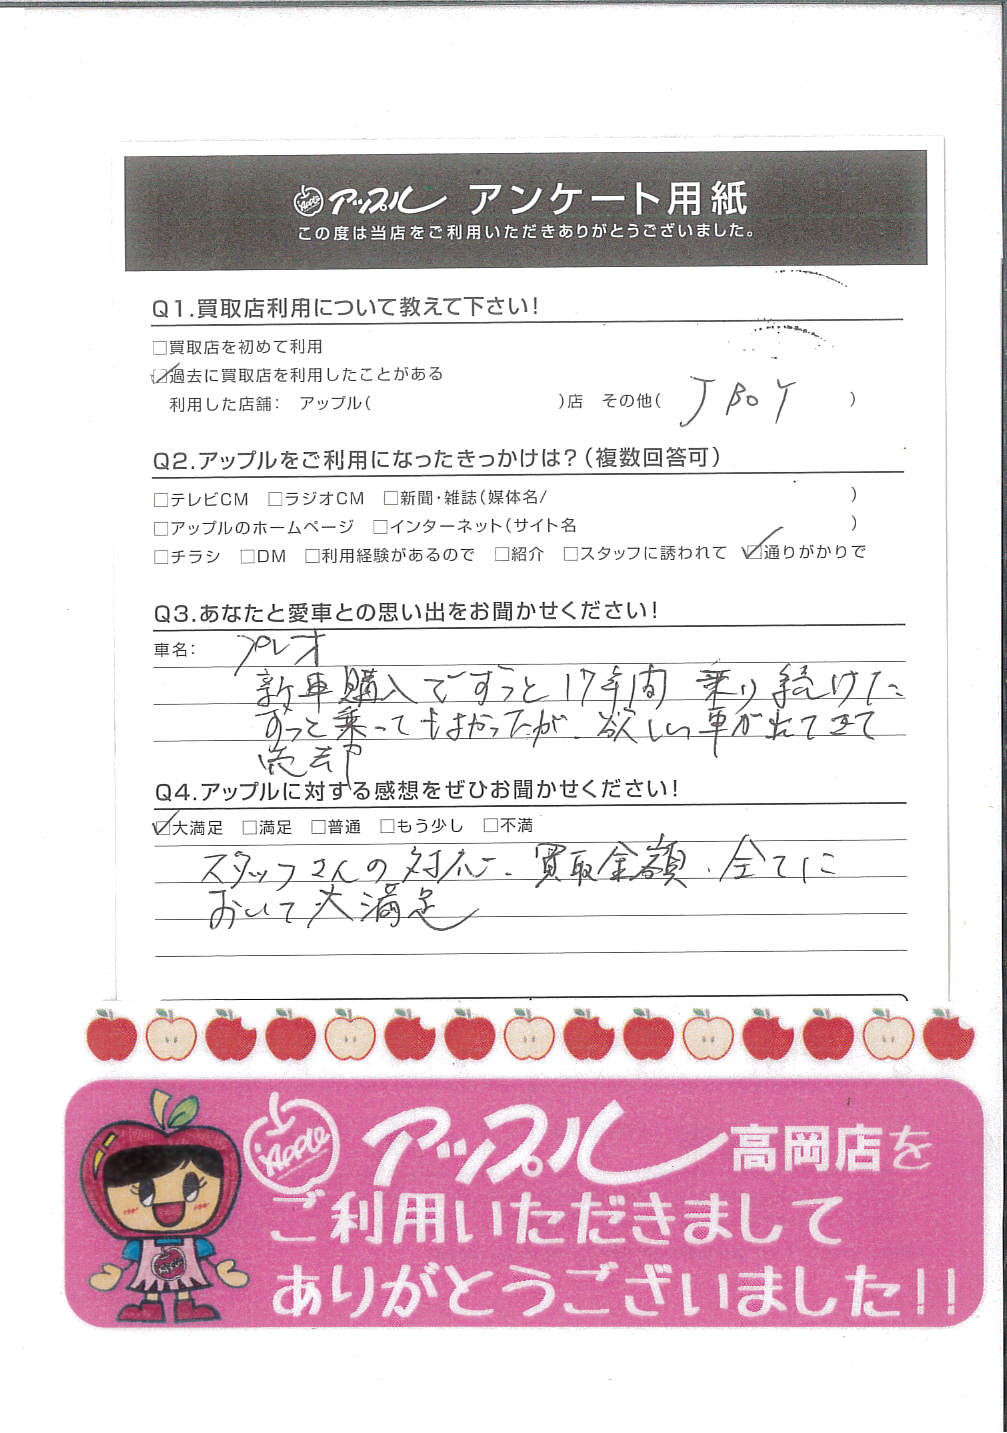 Apple アップル アンケート用紙
この度は当店をご利用いただきありがとうございました。
Q1.買取店利用について教えて下さい!
□買取店を初めて利用
☑過去に買取店を利用したことがある
利用した店舗: アップル( )店 その他( J BOY )
Q2.アップルをご利用になったきっかけは?(複数回答可)
□テレビCM □ラジオCM □新聞・雑誌(媒体名/ )
□アップルのホームページ □インターネット(サイト名 )
□チラシ □DM □利用経験があるので □紹介 □スタッフに誘われて ☑通りがかりで
Q3.あなたと愛車との思い出をお聞かせください!
車名: プレオ
新車購入でずっと17年間 乗り続けた
ずっと乗ってもよかったが、欲しい車が出てきて
売却
Q4.アップルに対する感想をぜひお聞かせください!
☑大満足 □満足 □普通 □もう少し □不満
スタッフさんの対応、買取金額、全てに
おいて大満足
Apple アップル 高岡店を
ご利用いただきまして
ありがとうございました!!